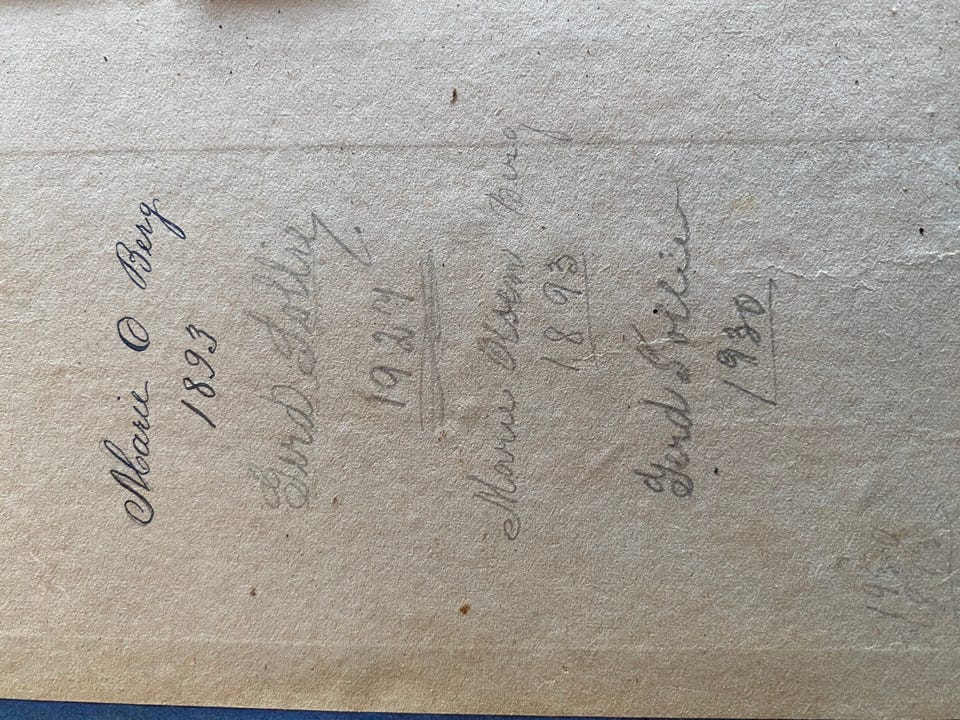 Marie O Berg
1893
Gerd Tollie
1927
Marie Olsen Berg
1893
Gerd Tollie
1930